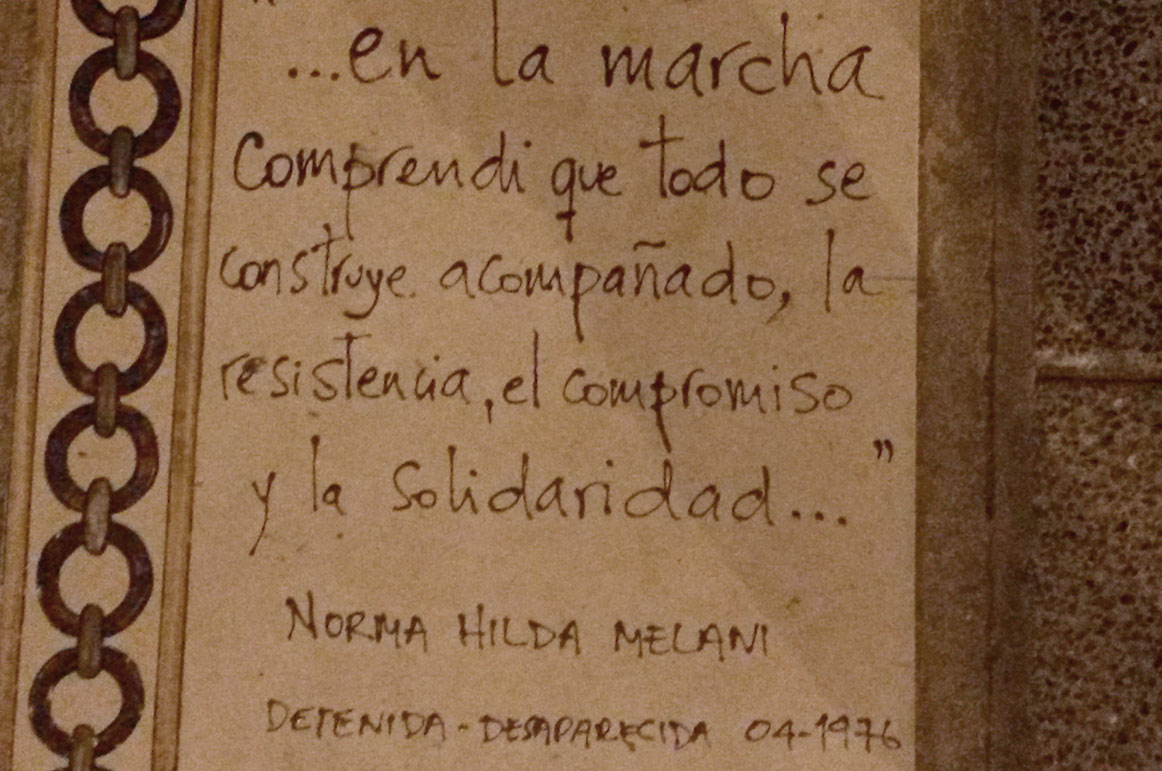 "...en la marcha
Comprendi que todo se
construye acompañado, la
resistencia, el compromiso
y la solidaridad..."
NORMA HILDA MELANI
DETENIDA-DESAPARECIDA 04-1976